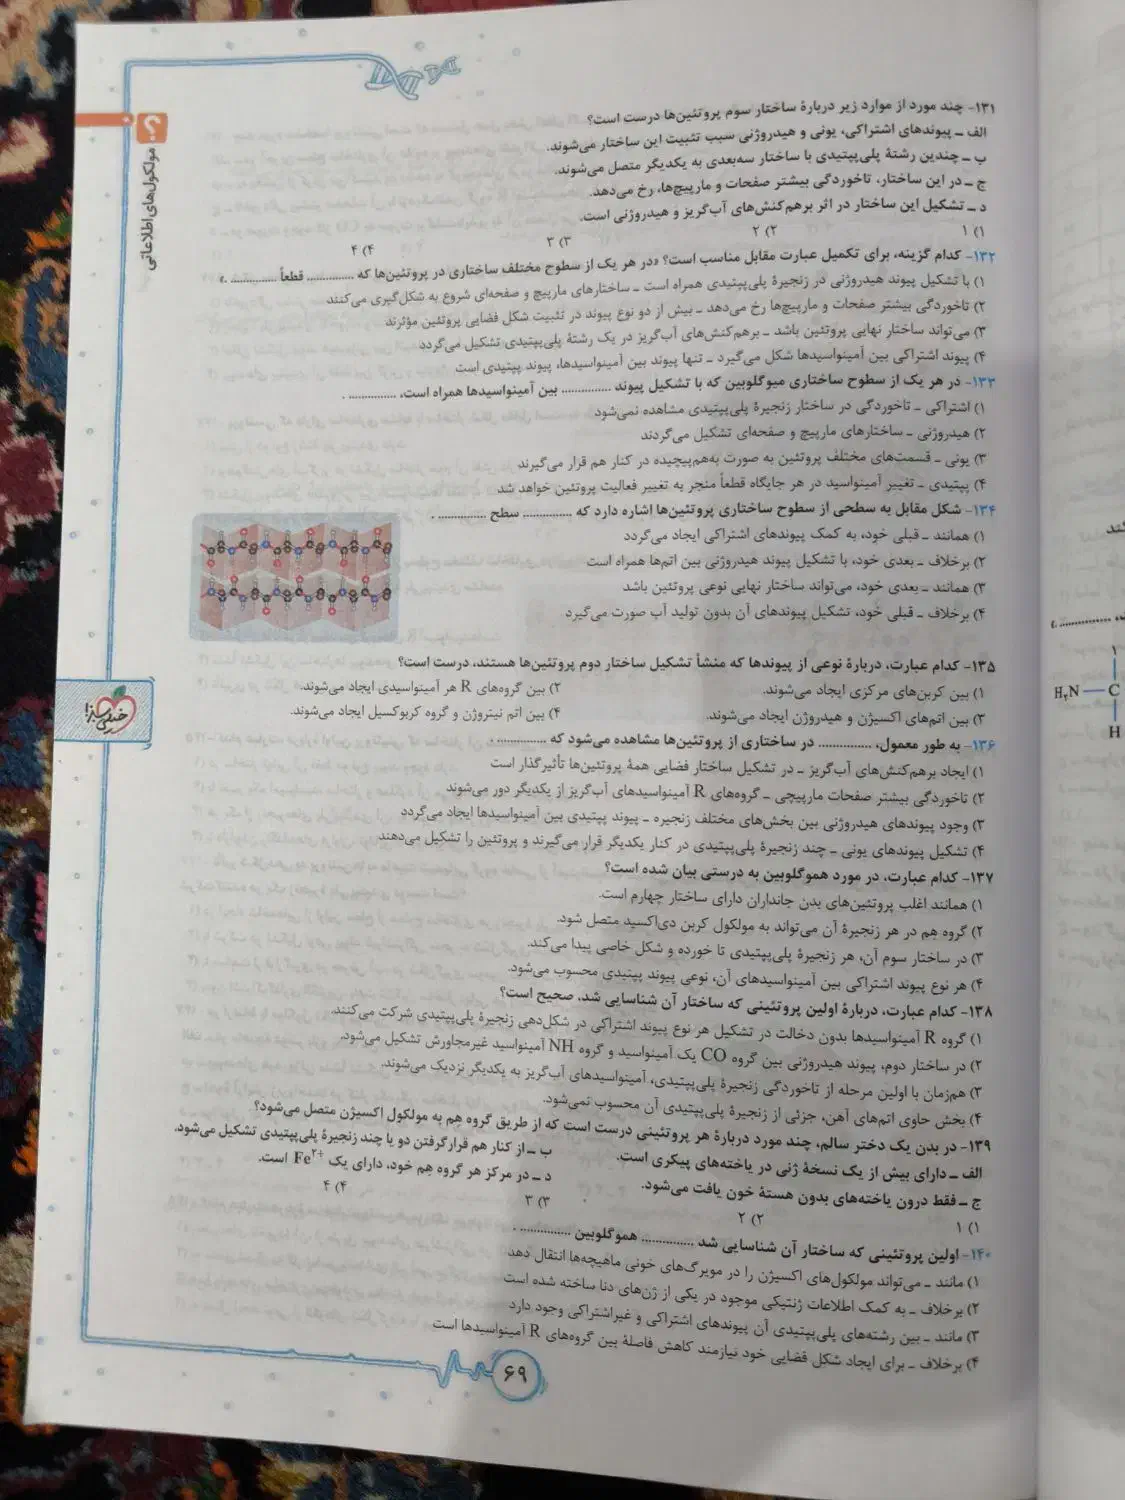 مولکول‌های اطلاعاتی
۱۳۱- چند مورد از موارد زیر دربارهٔ ساختار سوم پروتئین‌ها درست است؟
الف ـ پیوندهای اشتراکی، یونی و هیدروژنی سبب تثبیت این ساختار می‌شوند.
ب ـ چندین رشتهٔ پلی‌پپتیدی با ساختار سه‌بعدی به یکدیگر متصل می‌شوند.
ج ـ در این ساختار، تاخوردگی بیشتر صفحات و مارپیچ‌ها، رخ می‌دهد.
د ـ تشکیل این ساختار در اثر برهم‌کنش‌های آب‌گریز و هیدروژنی است.
۱) ۱ ۲) ۲ ۳) ۳ ۴) ۴
۱۳۲- کدام گزینه، برای تکمیل عبارت مقابل مناسب است؟ «در هر یک از سطوح مختلف ساختاری در پروتئین‌ها که .............. قطعاً .............. .»
۱) با تشکیل پیوند هیدروژنی در زنجیرهٔ پلی‌پپتیدی همراه است ـ ساختارهای مارپیچ و صفحه‌ای شروع به شکل‌گیری می‌کنند
۲) تاخوردگی بیشتر صفحات و مارپیچ‌ها رخ می‌دهد ـ بیش از دو نوع پیوند در تثبیت شکل فضایی پروتئین مؤثرند
۳) می‌تواند ساختار نهایی پروتئین باشد ـ برهم‌کنش‌های آب‌گریز در یک رشتهٔ پلی‌پپتیدی تشکیل می‌گردد
۴) پیوند اشتراکی بین آمینواسیدها شکل می‌گیرد ـ تنها پیوند بین آمینواسیدها، پیوند پپتیدی است
۱۳۳- در هر یک از سطوح ساختاری میوگلوبین که با تشکیل پیوند .............. بین آمینواسیدها همراه است، .............. .
۱) اشتراکی ـ تاخوردگی در ساختار زنجیرهٔ پلی‌پپتیدی مشاهده نمی‌شود
۲) هیدروژنی ـ ساختارهای مارپیچ و صفحه‌ای تشکیل می‌گردند
۳) یونی ـ قسمت‌های مختلف پروتئین به صورت به‌هم‌پیچیده در کنار هم قرار می‌گیرند
۴) پپتیدی ـ تغییر آمینواسید در هر جایگاه قطعاً منجر به تغییر فعالیت پروتئین خواهد شد
۱۳۴- شکل مقابل به سطحی از سطوح ساختاری پروتئین‌ها اشاره دارد که .............. سطح .............. .
۱) همانند ـ قبلی خود، به کمک پیوندهای اشتراکی ایجاد می‌گردد
۲) برخلاف ـ بعدی خود، با تشکیل پیوند هیدروژنی بین اتم‌ها همراه است
۳) همانند ـ بعدی خود، می‌تواند ساختار نهایی نوعی پروتئین باشد
۴) برخلاف ـ قبلی خود، تشکیل پیوندهای آن بدون تولید آب صورت می‌گیرد
۱۳۵- کدام عبارت، دربارهٔ نوعی از پیوندها که منشأ تشکیل ساختار دوم پروتئین‌ها هستند، درست است؟
۱) بین کربن‌های مرکزی ایجاد می‌شوند. ۲) بین گروه‌های R هر آمینواسیدی ایجاد می‌شوند.
۳) بین اتم‌های اکسیژن و هیدروژن ایجاد می‌شوند. ۴) بین اتم نیتروژن و گروه کربوکسیل ایجاد می‌شوند.
۱۳۶- به طور معمول، .............. در ساختاری از پروتئین‌ها مشاهده می‌شود که .............. .
۱) ایجاد برهم‌کنش‌های آب‌گریز ـ در تشکیل ساختار فضایی همهٔ پروتئین‌ها تأثیرگذار است
۲) تاخوردگی بیشتر صفحات مارپیچی ـ گروه‌های R آمینواسیدهای آب‌گریز از یکدیگر دور می‌شوند
۳) وجود پیوندهای هیدروژنی بین بخش‌های مختلف زنجیره ـ پیوند پپتیدی بین آمینواسیدها ایجاد می‌گردد
۴) تشکیل پیوندهای یونی ـ چند زنجیرهٔ پلی‌پپتیدی در کنار یکدیگر قرار می‌گیرند و پروتئین را تشکیل می‌دهند
۱۳۷- کدام عبارت، در مورد هموگلوبین به درستی بیان شده است؟
۱) همانند اغلب پروتئین‌های بدن جانداران دارای ساختار چهارم است.
۲) گروه هِم در هر زنجیرهٔ آن می‌تواند به مولکول کربن دی‌اکسید متصل شود.
۳) در ساختار سوم آن، هر زنجیرهٔ پلی‌پپتیدی تا خورده و شکل خاصی پیدا می‌کند.
۴) هر نوع پیوند اشتراکی بین آمینواسیدهای آن، نوعی پیوند پپتیدی محسوب می‌شود.
۱۳۸- کدام عبارت، دربارهٔ اولین پروتئینی که ساختار آن شناسایی شد، صحیح است؟
۱) گروه R آمینواسیدها بدون دخالت در تشکیل هر نوع پیوند اشتراکی در شکل‌دهی زنجیرهٔ پلی‌پپتیدی شرکت می‌کنند.
۲) در ساختار دوم، پیوند هیدروژنی بین گروه CO یک آمینواسید و گروه NH آمینواسید غیرمجاورش تشکیل می‌شود.
۳) هم‌زمان با اولین مرحله از تاخوردگی زنجیرهٔ پلی‌پپتیدی، آمینواسیدهای آب‌گریز به یکدیگر نزدیک می‌شوند.
۴) بخش حاوی اتم‌های آهن، جزئی از زنجیرهٔ پلی‌پپتیدی آن محسوب نمی‌شود.
۱۳۹- در بدن یک دختر سالم، چند مورد دربارهٔ هر پروتئینی درست است که از طریق گروه هِم به مولکول اکسیژن متصل می‌شود؟
الف ـ دارای بیش از یک نسخهٔ ژنی در یاخته‌های پیکری است. ب ـ از کنار هم قرارگرفتن دو یا چند زنجیرهٔ پلی‌پپتیدی تشکیل می‌شود.
ج ـ فقط درون یاخته‌های بدون هستهٔ خون یافت می‌شود. د ـ در مرکز هر گروه هِم خود، دارای یک Fe²⁺ است.
۱) ۱ ۲) ۲ ۳) ۳ ۴) ۴
۱۴۰- اولین پروتئینی که ساختار آن شناسایی شد .............. هموگلوبین .............. .
۱) مانند ـ می‌تواند مولکول‌های اکسیژن را در مویرگ‌های خونی ماهیچه‌ها انتقال دهد
۲) برخلاف ـ به کمک اطلاعات ژنتیکی موجود در یکی از ژن‌های دنا ساخته شده است
۳) مانند ـ بین رشته‌های پلی‌پپتیدی آن پیوندهای اشتراکی و غیراشتراکی وجود دارد
۴) برخلاف ـ برای ایجاد شکل فضایی خود نیازمند کاهش فاصلهٔ بین گروه‌های R آمینواسیدها است
۶۹
خیلی سبز!
کند
۱
H₂N — C
H